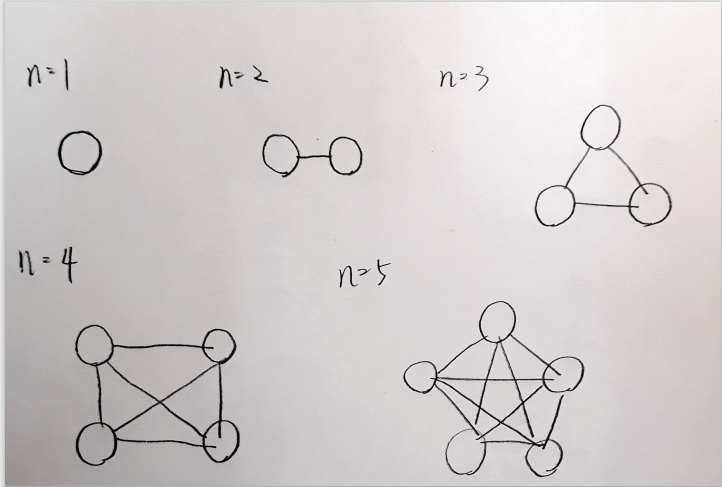 n=1
n=2
n=3
n=4
n=5